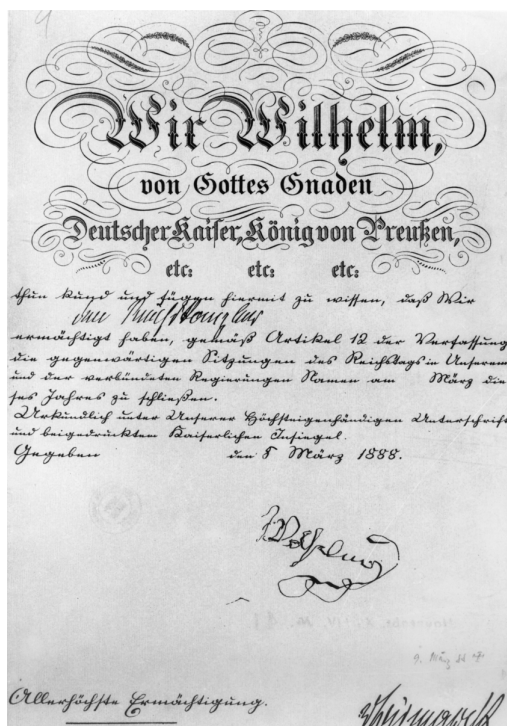 Wir Wilhelm,
von Gottes Gnaden
Deutscher Kaiser, König von Preußen,
etc: etc: etc:
thun kund und fügen hiermit zu wissen, daß Wir
den Reichskanzler
ermächtigt haben, gemäß Artikel 12 der Verfassung
die gegenwärtigen Sitzungen des Reichstags in Unserem
und der verbündeten Regierungen Namen am März die-
ses Jahres zu schließen.
Urkundlich unter Unserer Höchsteigenhändigen Unterschrift
und beigedrucktem Kaiserlichen Insiegel.
Gegeben den 8 März 1888.
Wilhelm
9. März 88
Allerhöchste Ermächtigung.
v Bismarck